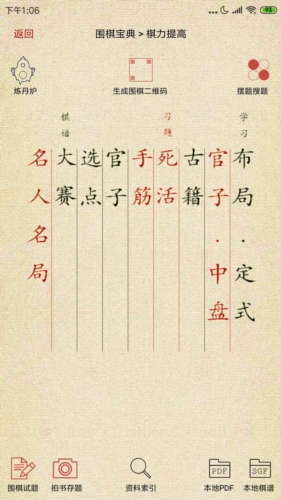 下午1:06
93
返回
围棋宝典 > 棋力提高
炼丹炉
生成围棋二维码
摆题搜题
学习
布局·定式
官子·中盘
习题
古籍
死活
手筋
官子
选点
棋谱
大赛
名人名局
围棋试题
拍书存题
资料索引
PDF
本地PDF
SGF
本地棋谱